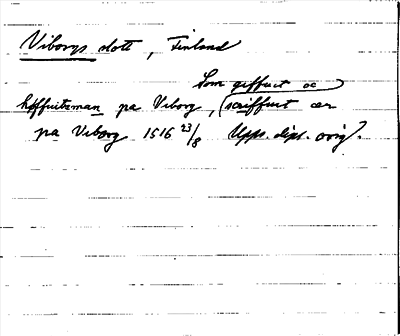 Viborgs slott, Finland
Som geffuet oc
höffuitzman pa Viborg, (scriffuit ær
pa Viborg 1516 23/8 Upps. dipl. orig?